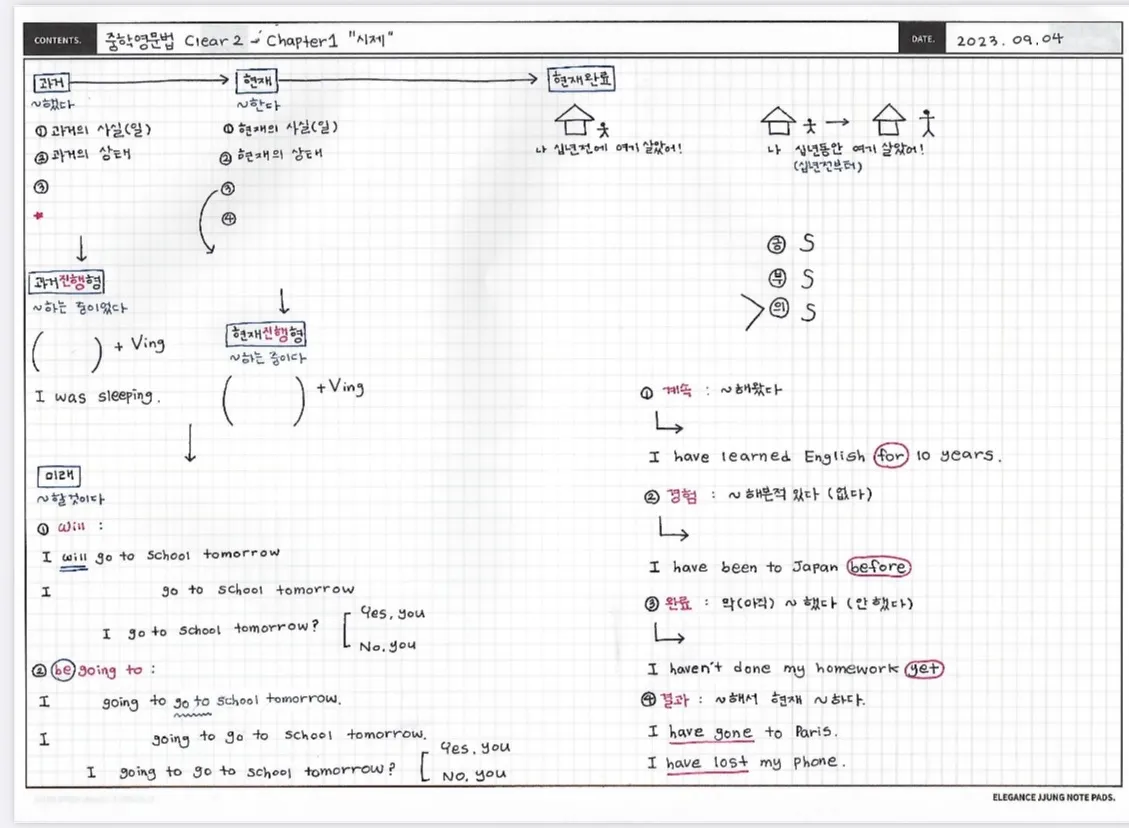 CONTENTS.
중학영문법 Clear 2 - Chapter1 "시제"
DATE.
2023. 09. 04
과거
~했다
① 과거의 사실(일)
② 과거의 상태
③
현재
~한다
① 현재의 사실(일)
② 현재의 상태
③
④
현재완료
나 십년전에 여기 살았어!
나 십년동안 여기 살았어!
(십년전부터)
긍 S
부 S
의 S
과거진행형
~하는 중이었다
( ) + Ving
I was sleeping.
현재진행형
~하는 중이다
( ) + Ving
미래
~할것이다
① will :
I will go to school tomorrow
I go to school tomorrow
I go to school tomorrow?
Yes, you
No, you
② be going to :
I going to go to school tomorrow.
I going to go to school tomorrow.
I going to go to school tomorrow?
Yes, you
No, you
① 계속 : ~해왔다
I have learned English for 10 years.
② 경험 : ~해본적 있다 (없다)
I have been to Japan before
③ 완료 : 막(아직) ~했다 (안 했다)
I haven't done my homework yet
④ 결과 : ~해서 현재 ~하다.
I have gone to Paris.
I have lost my phone.
ELEGANCE JJUNG NOTE PADS.